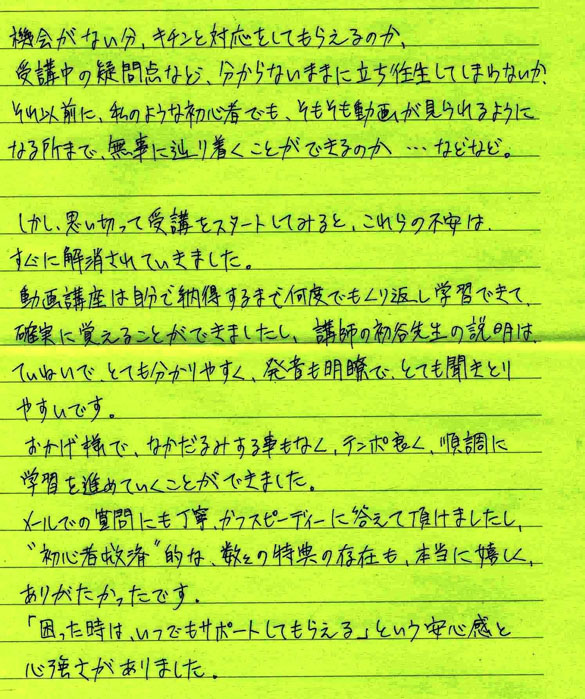 機会がない分、キチンと対応をしてもらえるのか、
受講中の疑問点など、分からないままに立ち往生してしまわないか
それ以前に、私のような初心者でも、そもそも動画が見られるように
なる所まで、無事に辿り着くことができるのか…などなど。
しかし、思い切って受講をスタートしてみると、これらの不安は、
すぐに解消されていきました。
動画講座は自分で納得するまで何度でもくり返し学習できて、
確実に覚えることができましたし、講師の初谷先生の説明は、
ていねいで、とても分かりやすく、発音も明瞭で、とても聞きとり
やすいです。
おかげ様で、なかだるみする事もなく、テンポ良く、順調に
学習を進めていくことができました。
メールでの質問にも丁寧、かつスピーディーに答えて頂けましたし、
"初心者救済"的な、数々の特典の存在も、本当に嬉しく、
ありがたかったです。
「困った時は、いつでもサポートしてもらえる」という安心感と
心強さがありました。